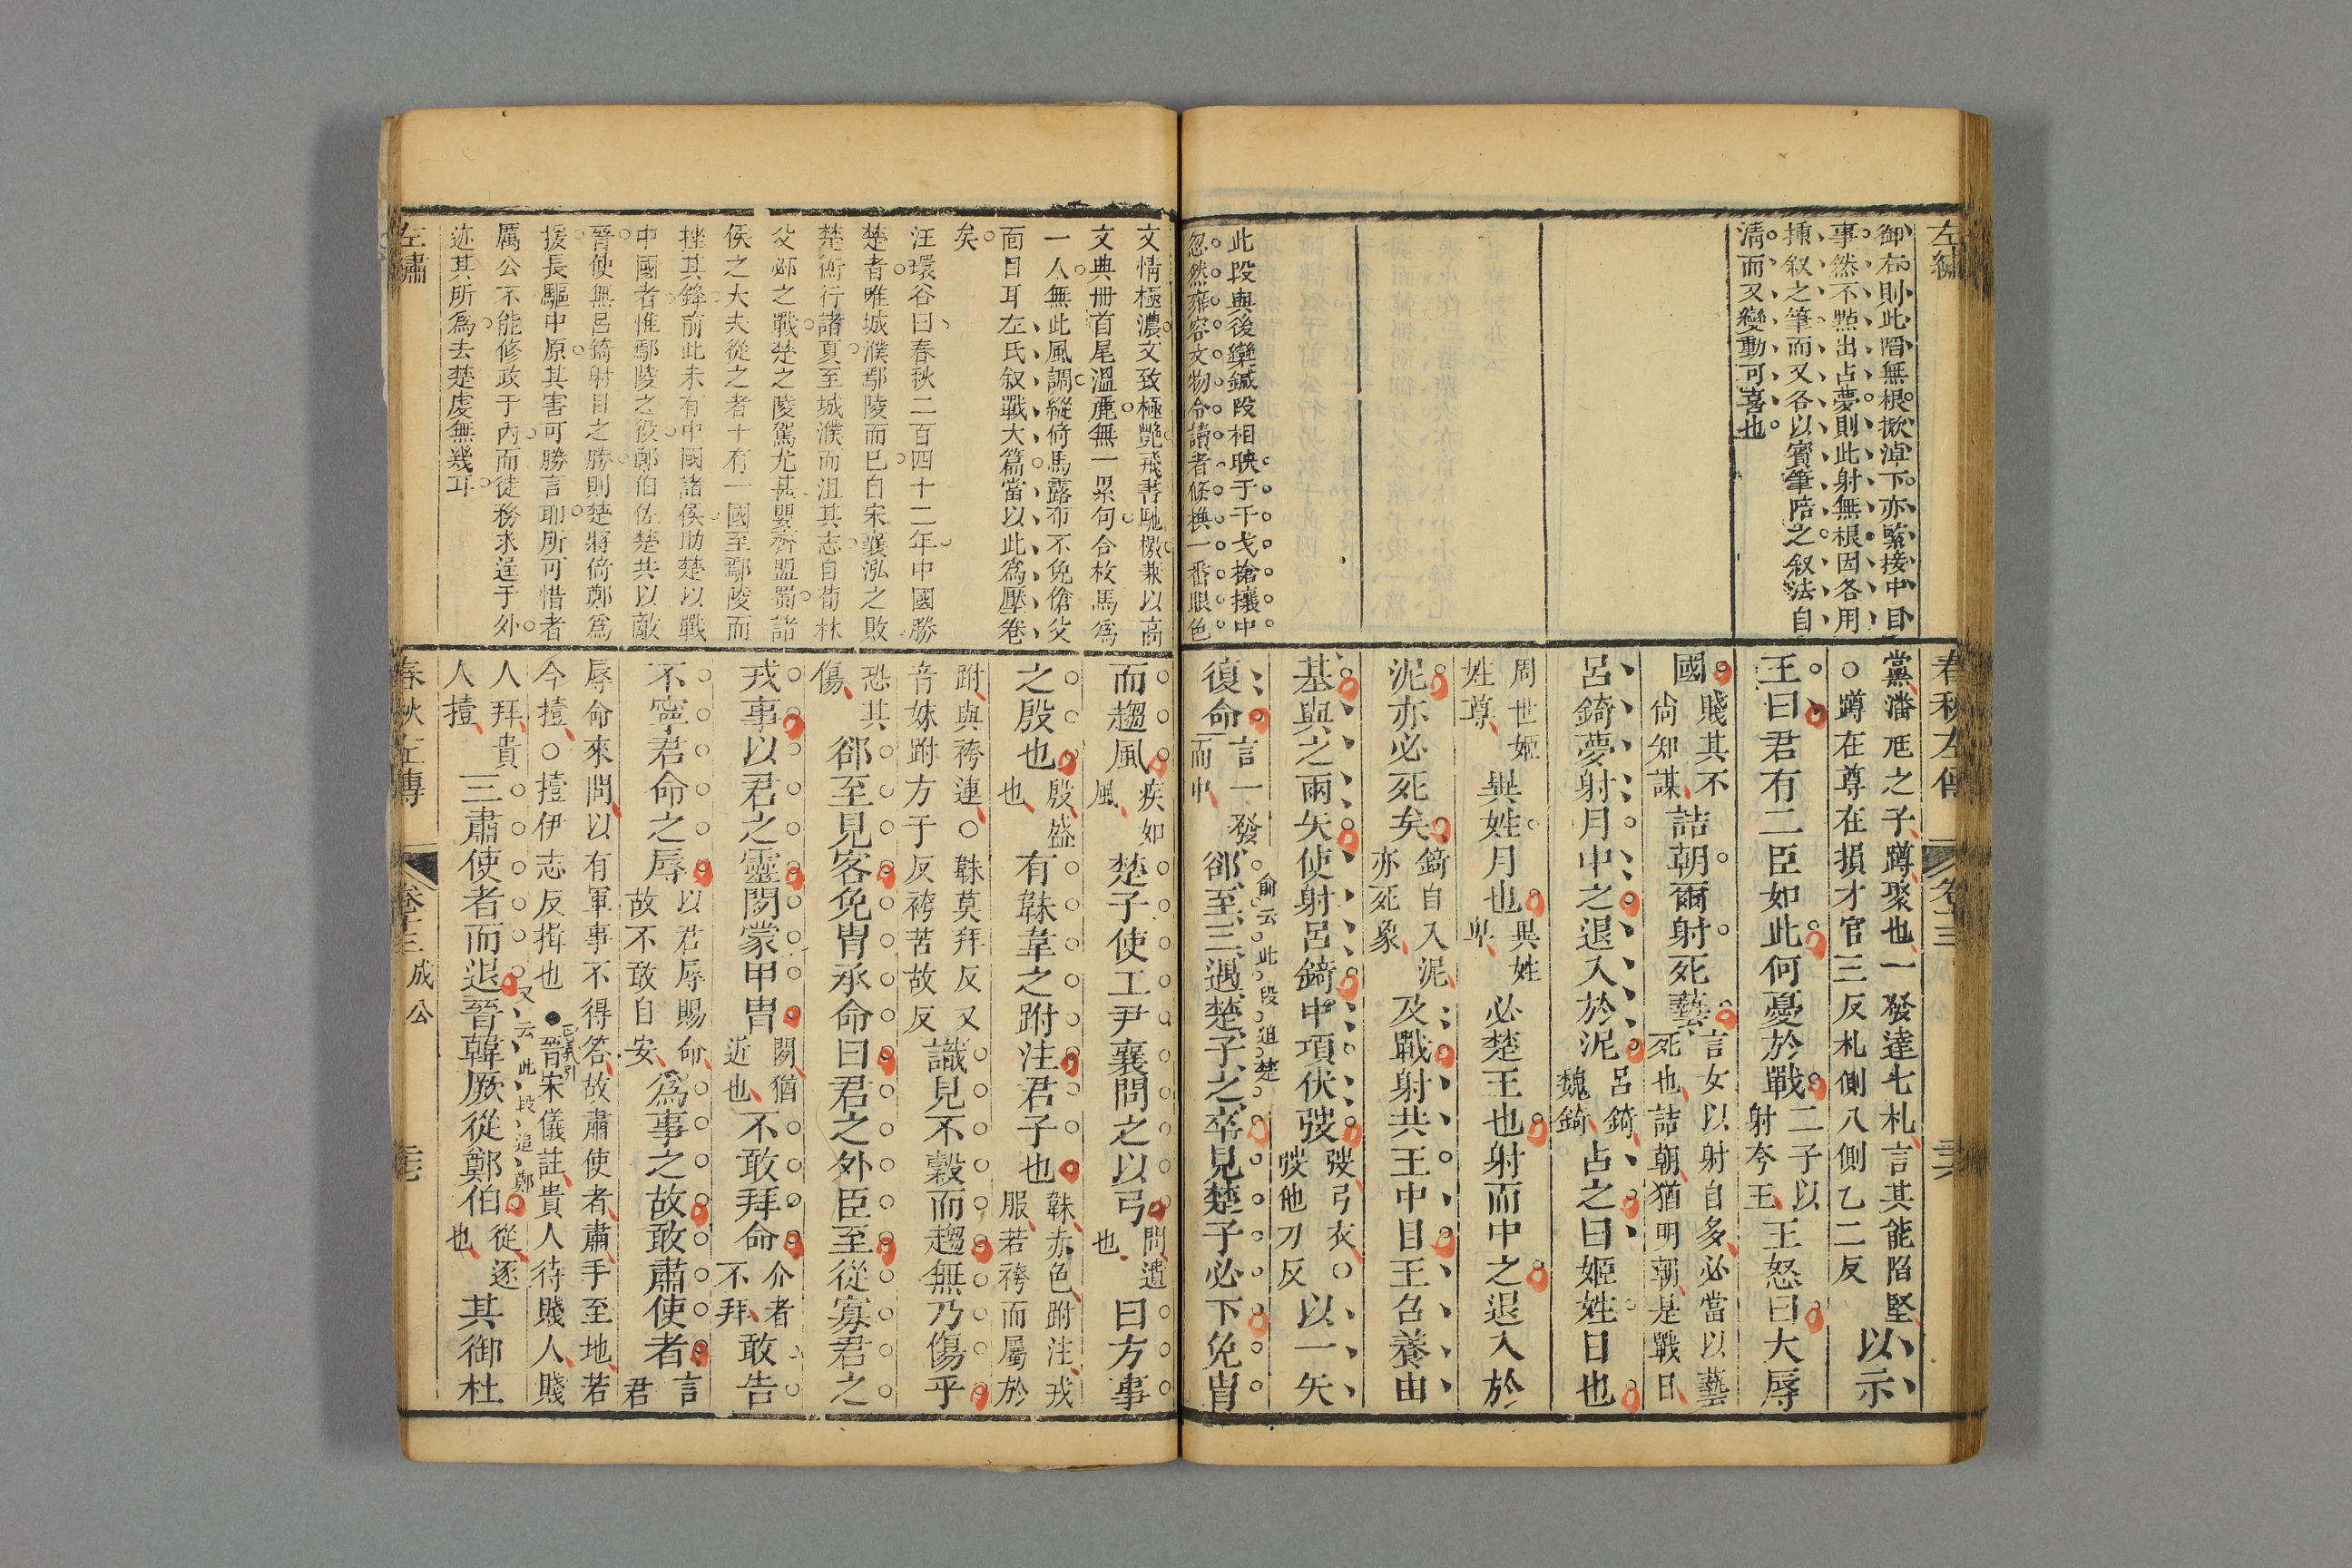 左繡
御右則此㫾無根掀淖下亦緊接中目
事然不㸃出占夢則此射無根因各用
揷叙之筆而又各以賓筆陪之叙法自
清而又變動可喜也
此段與後欒鍼段相映于干戈搶攘中
忽然雍容文物令讀者倐換一番眼色
春秋左傳
卷十三
三六
黨潘尪之子蹲聚也一發達七札言其能陷堅
○蹲在尊在損才官三反札側八側乙二反
以示
王曰君有二臣如此何憂於戰
二子以
射夸王
王怒曰大辱
國
賤其不
尙知謀
詰朝爾射死藝
言女以射自多必當以藝
死也詰朝猶明朝是戰日
呂錡夢射月中之退入於泥
呂錡
魏錡
占之曰姬姓日也
周世姬
姓尊
異姓月也
異姓
卑
必楚王也射而中之退入於
泥亦必死矣
錡自入泥
亦死象
及戰射共王中目王召養由
基與之兩矢使射呂錡中項伏弢
弢弓衣○
弢他刀反
以一矢
復命
言一發
而中
俞云此段追楚
郤至三遇楚子之卒見楚子必下免胄
文情極濃文致極艶飛書馳檄兼以高
文典冊首尾溫麗無一累句合枚馬爲
一人無此風調縱倚馬露布不免傖父
面目耳左氏叙戰大篇當以此爲壓卷
矣
汪環谷曰春秋二百四十二年中國勝
楚者唯城濮鄢陵而已自宋襄泓之敗
楚術行諸夏至城濮而沮其志自荀林
父邲之戰楚之陵駕尤甚嬰齊盟蜀諸
侯之大夫從之者十有一國至鄢陵而
挫其鋒前此未有中國諸侯助楚以戰
中國者惟鄢陵之役鄭伯佐楚共以敵
晉使無呂錡射目之勝則楚將倚鄭爲
援長驅中原其害可勝言耶所可惜者
厲公不能修政于內而徒務求逞于外
迹其所爲去楚虔無幾耳
而趨風
疾如
風
楚子使工尹襄問之以弓
問遺
也
曰方事
之殷也
殷盛
也
有韎韋之跗注君子也
韎赤色跗注戎
服若袴而屬於
跗與袴連○韎莫拜反又
音妹跗方于反袴苦故反
識見不穀而趨無乃傷乎
恐其
傷
郤至見客免胄承命曰君之外臣至從寡君之
戎事以君之靈閒蒙甲胄
閒猶
近也
不敢拜命
介者
不拜
敢告
不寧君命之辱
以君辱賜命
故不敢自安
爲事之故敢肅使者
言
君
辱命來問以有軍事不得答故肅使者肅手至地若
今撎○撎伊志反揖也●晉宋儀註貴人待賤人賤
人拜貴
人撎
三肅使者而退
又云此段追鄭
晉韓厥從鄭伯
從逐
也
其御杜
左繡
春秋左傳
卷十三
成公
三七